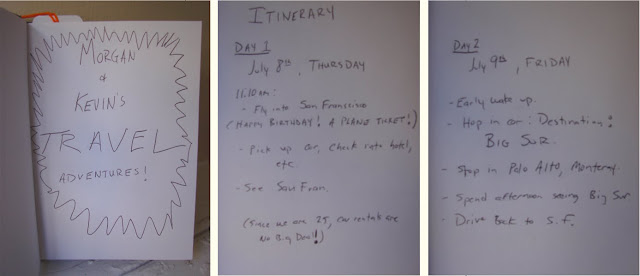 MORGAN
&
KEVIN'S
TRAVEL
ADVENTURES!
ITINERARY
DAY 1
July 8th, THURSDAY
11:10am:
- Fly into San Francisco
(HAPPY BIRTHDAY! A PLANE TICKET!)
- Pick up car, check into hotel,
etc.
- See San Fran.
(Since we are 25, car rentals are
No Big Deal!)
DAY 2
July 9th, FRIDAY
- Early wake up.
- Hop in car: Destination:
BIG SUR.
- Stop in Palo Alto, Monterey.
- Spend afternoon seeing Big Sur
- Drive Back to S.F.